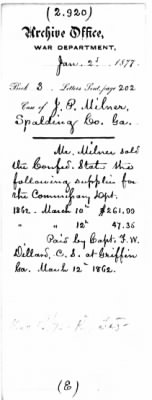 (2.920)
Archive Office,
WAR DEPARTMENT,
Jan. 2d, 1877.
Book 3 Letters Sent, page 202
Case of J. P. Milner,
Spalding Co. Ga.
Mr. Milner sold
the Confed. States the
following supplies for
the Commissary Dpt.
1862. March 10th $261.99
" " 12th 47.36
Paid by Capt. F. W.
Dillard, C. S. at Griffin
Ga. March 12th 1862.
(E)